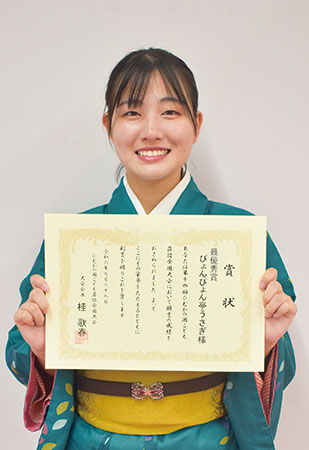 賞状
最優秀賞
ぴょんぴょん亭うさぎ様
あなたは第十四回ひむかの国こども
落語全国大会において頭書の成績を
おさめられました よって
ここにその栄誉をたたえるとともに
副賞を贈りこれを賞します
令和六年七月二十八日
ひむかの国こども落語全国大会
大会会長 桂歌春